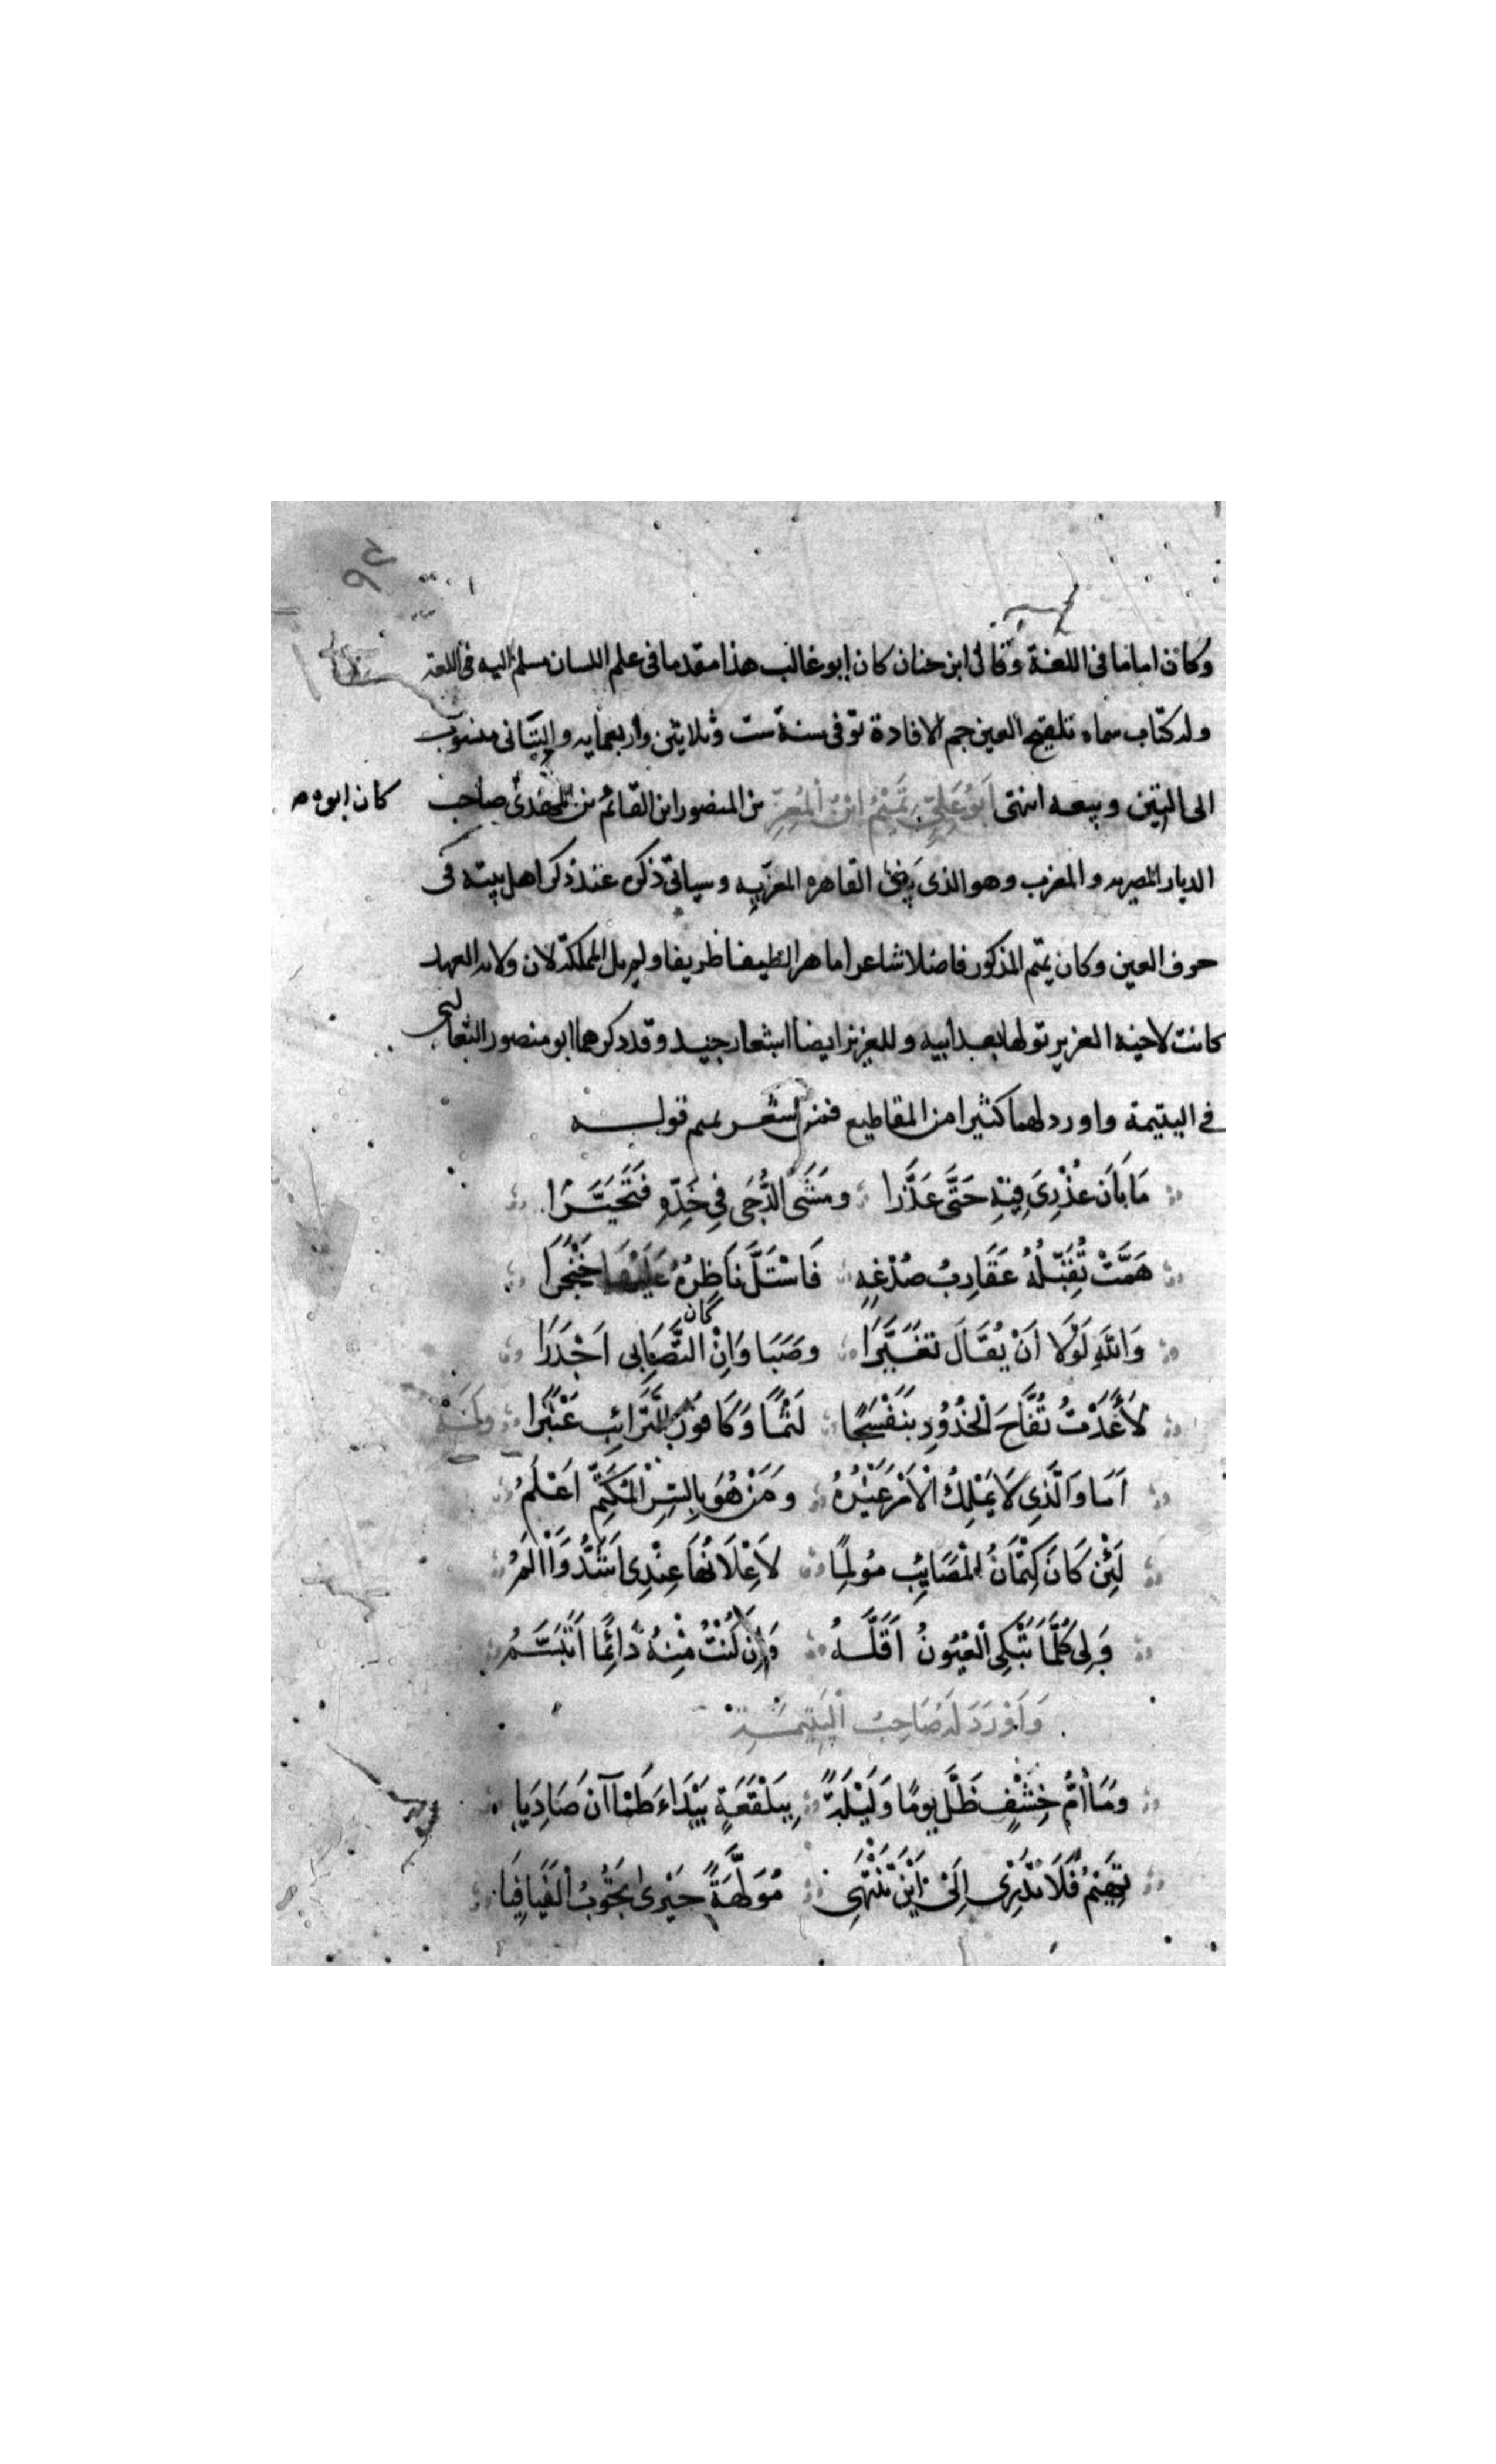 ٩٤
وكان اماما فى اللغة وقال ابن حنان كان ابو غالب هذا مقدما فى علم اللسان مسلم اليه فى اللغة
وله كتاب سماه تلقيح العين جم الافادة توفى سنة ست وثلاثين واربعمايه والتيانى منسوب
الى التين وبيعه انتهى اَبُو عَلِىّ تَمِيْمُ ابْنُ اْلمُعِزّ بن المنصور ابن القائم بن المهدى صاحب كان ابوه
الديار المصريه والمغرب وهو الذى بنى القاهره المعزّيه وسياتى ذكره عند ذكر اهل بيته فى
حرف العين وكان تميم المذكور فاضلا شاعرا ماهرا لطيفا ظريفا ولم يل المملكة لان ولايه العهد
كانت لاخيه العزيز تولها بعد ابيه وللعزيز ايضا اشعار جيد وقد ذكرهما ابو منصور الثعالبى
فى اليتيمة واورد لهما كثيرا من المقاطيع فمن شعر تميم قوله
مَا بَاَن عُذْرِىَ فِيْهِ حَتَّى عَذَّرا ومَشَى الدُّجَى فِى خَدِّهِ فَتَحَيَّرَا
هَمَّتْ تُقَبّلُهُ عَقَارِبُ صُدْغِهِ فَاسْتَلَّ نَاظِرُهُ عَلَيْهَا خَنْجَرَا
وَاللهِ لَوْلَا اَنْ يُقَالَ تَغَيَّرَا وصَبَا وَاِنْ كان التَّصَابِى اَجْدَرَا
لَأَعَدْتُ تُفَّاحَ الْخُدُوْدِ بَنَفْسَجًا لَثْمًا وَكَافُوْرَ التَّرَائِبِ عَنْبَرَا وله
اَمَا وَالَّذِى لَا يَمْلِكُ الْاَمْرَ غَيْرُهُ وَمَنْ هُوَ بِالسِّرِّ الْمُكَتَّمِ اَعْلَمُ
لَئِنْ كَانَ كِتْمَانُ الْمَصَايِبِ مُولِمًا لَاِعْلَانُهَا عِنْدِى اَشَدُّ وَاالَمُ
وَلِى كُلَّمَا تَبْكِى الْعُيُوْنُ اَقَلَّهُ وَاِنْ كُنْتُ مِنْهُ دَائِمًا اَتَبَسَّمُ
وَاَوْرَدَ لَهُ صَاحِبُ الْيَتِيْمَةِ
وَمَا أُمُّ خِشْفٍ ظَلَّ يَومًا وَلَيْلَةً بِبَلْقَعَةٍ بَيْدَاءَ ظَمْاآنَ صَادِيَا
تَهِيْمُ فَلَا تَدْرِى اِلَى اَيْنَ تَنْتَهِى مُوَلَّهَةً حَيْرىٰ تَجُوْبُ الْفَيَافِيَا